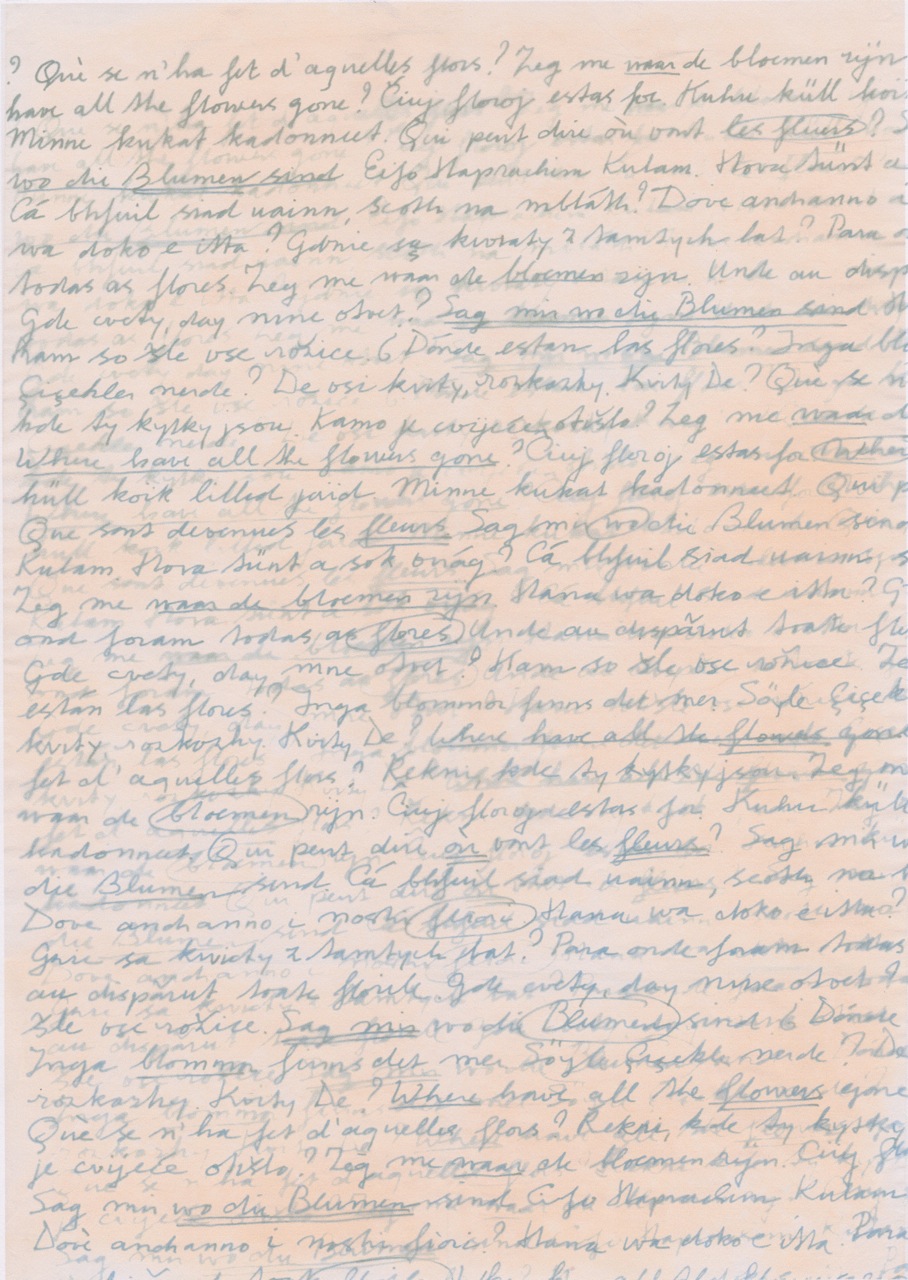 ? Què se n'ha fet d'aquelles flors? Zeg me waar de bloemen zijn
have all the flowers gone? Ĉiuj floroj estas for. Kuhu küll koi
Minne kukat kadonneet. Qui peut dire où vont les fleurs? S
wo die Blumen sind Eifo Haprachim Kulam. Hova tünt a
Cá bhfuil siad uainn, scoth na mbláth? Dove andranno i
wa doko e itta? Gdzie są kwiaty z tamtych lat? Para o
todas as flores. Zeg me waar de bloemen zijn. Unde au disp
Gde cvety, day mne otvet? Sag mir wo die Blumen sind
kam so šle vse rožice. ¿Dónde estan las flores? Inga blo
Çiçekler nerde? De osi kvity, rozkazhy. Kvity De? Què se n
kde ty kytky jsou. Kamo je cvijeće otišlo? Zeg me waar d
Where have all the flowers gone? Ĉiuj floroj estas for
küll kõik lilled jäid Minne kukat kadonneet. Qui p
Que sont devenues les fleurs Sag mir wo die Blumen sind
Kulam Hova tünt a sok virág? Cá bhfuil siad uainn, s
Zeg me waar de bloemen zijn Hana wa doko e itta? G
ond foram todas as flores Unde au dispărut toate flo
Gde cvety, day mne otvet? Kam so šle vse rožice
estan las flores? Inga blommor finns det mer. Söyle Çiçek
kvity rozkazhy. Kvity De? Where have all the flowers gone
fet d'aquelles flors? Rekni, kde ty kytky jsou. Zeg me
waar de bloemen zijn. Ĉiuj floroj estas for. Kuhu küll
kadonneet. Qui peut dire où vont les fleurs? Sag mir w
die Blumen sind Cá bhfuil siad uainn, scoth na b
Dove andranno i nostri fiori Hana wa doko e itta?
Gdzie są kwiaty z tamtych lat? Para onde foram todas
au dispărut toate florile Gde cvety, day mne otvet?
šle vse rožice. Sag mir wo die Blumen sind ¿Dónde
Inga blomma finns det mer Söyle Çiçekler nerde? De
rozkazhy. Kvity De? Where have all the flowers gone
Què se n'ha fet d'aquelles flors? Rekni, kde ty kytky
je cvijeće otišlo? Zeg me waar de bloemen zijn. Ĉiuj flo
Sag mir wo die Blumen sind Eifo Haprachim Kulam
Dove andranno i nostri fiori? Hana wa doko e itta Para